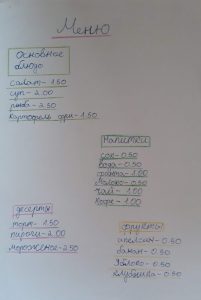 Меню
Основное
блюдо
салат - 1.50
суп - 2.00
рыба - 2.50
картофель фри - 1.50
Напитки
сок - 0.50
вода - 0.50
фанта - 1.00
молоко - 0.50
чай - 1.00
кофе - 1.00
десерты
торт - 1.50
пироги - 2.00
мороженое - 2.50
фрукты
апельсин - 0.50
банан - 0.50
яблоко - 0.50
клубника - 0.50